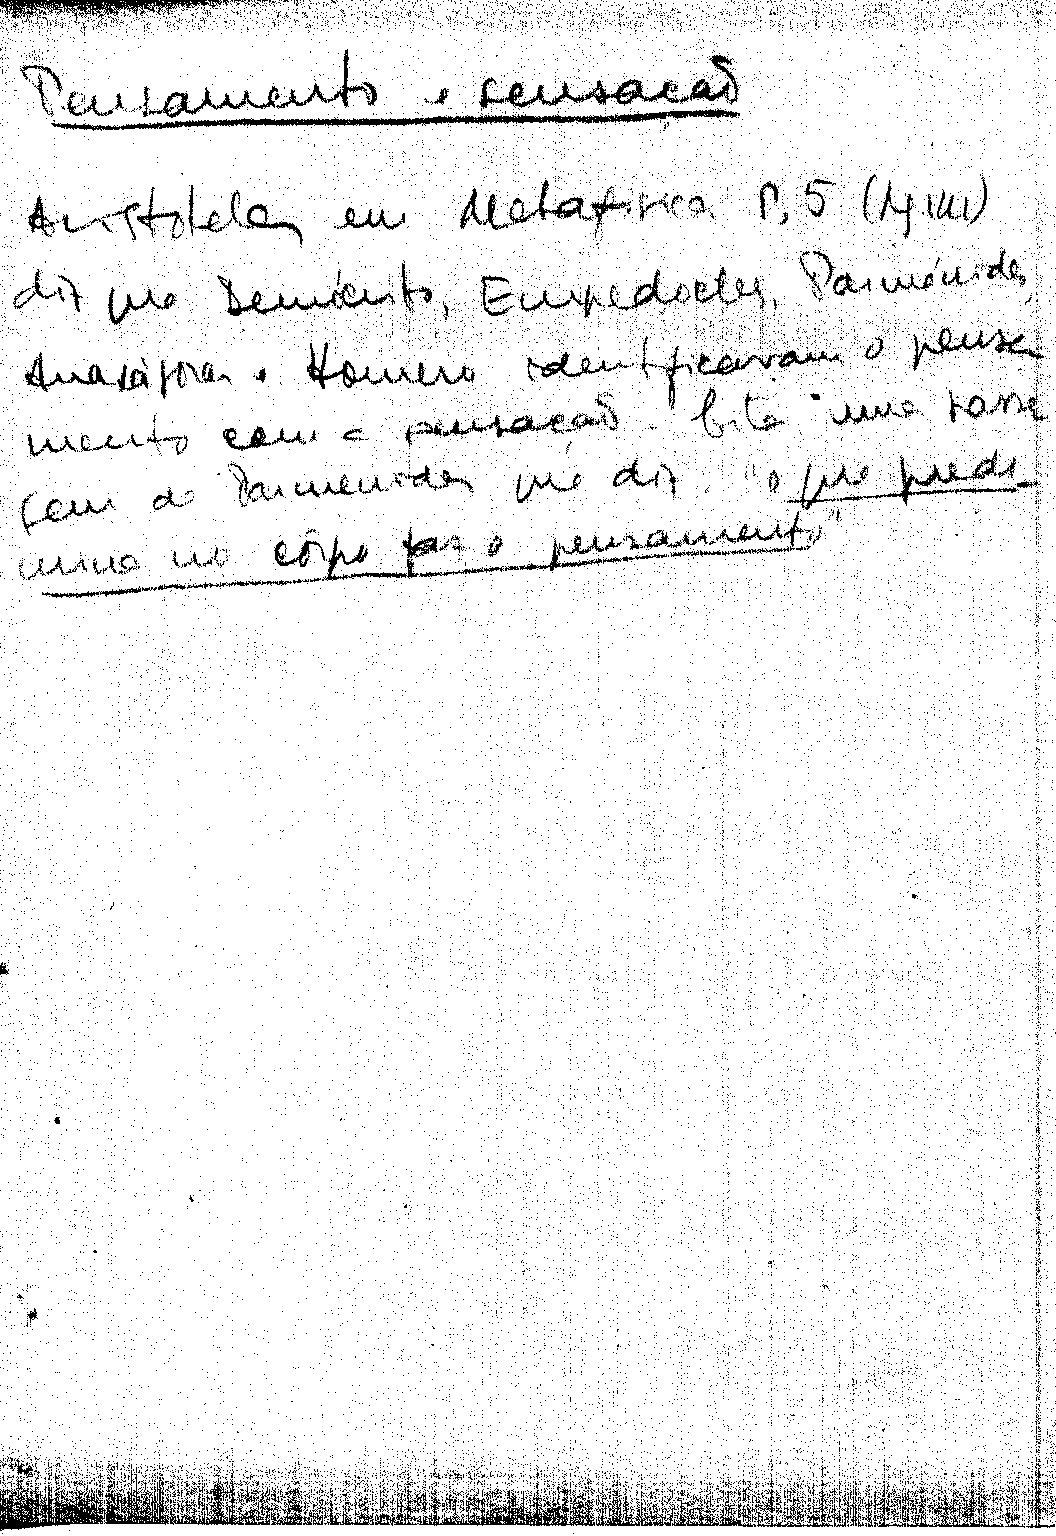 Pensamento e sensação
Aristoteles em Metafisica Γ, 5
diz que Demócrito, Empedocles, Parménides
Anaxágoras e Homero identificavam o pensa
mento com a sensação. Cita uma passa
gem de Parmenides que diz "o que predo
mina no côrpo faz o pensamento"